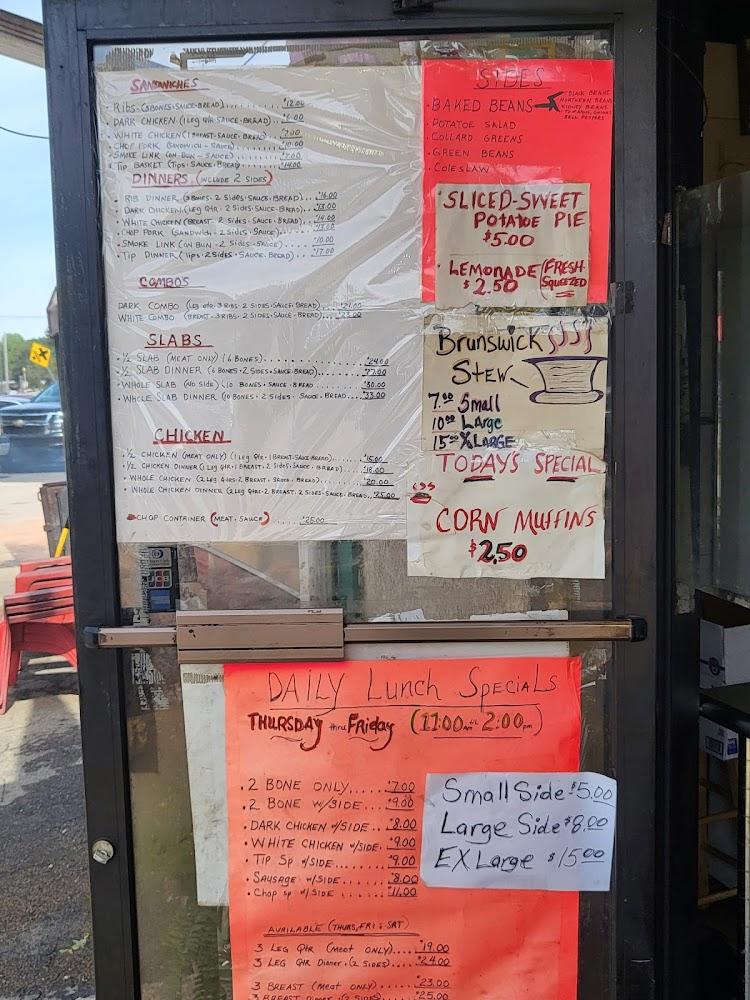 SANDWICHES
RIBS (3 BONES · SAUCE · BREAD) $12.00
DARK CHICKEN (1 LEG QTR · SAUCE · BREAD) $6.00
WHITE CHICKEN (1 BREAST · SAUCE · BREAD) $7.00
CHOP PORK (SANDWICH - SAUCE) $10.00
SMOKE LINK (ON BUN - SAUCE) $7.00
TIP BASKET (TIPS · SAUCE · BREAD) $14.00
DINNERS (INCLUDE 2 SIDES)
RIB DINNER (3 BONES · 2 SIDES · SAUCE · BREAD) $16.00
DARK CHICKEN (LEG QTR · 2 SIDES · SAUCE · BREAD) $13.00
WHITE CHICKEN (BREAST · 2 SIDES · SAUCE · BREAD) $14.00
CHOP PORK (SANDWICH · 2 SIDES · SAUCE)
SMOKE LINK (ON BUN · 2 SIDES · SAUCE) $10.00
TIP DINNER (TIPS · 2 SIDES · SAUCE · BREAD) $17.00
COMBO'S
DARK COMBO (LEG QTR · 3 RIBS · 2 SIDES · SAUCE · BREAD) $21.00
WHITE COMBO (BREAST · 3 RIBS · 2 SIDES · SAUCE · BREAD) $23.00
SLABS
½ SLAB (MEAT ONLY) (6 BONES) $24.00
½ SLAB DINNER (6 BONES · 2 SIDES · SAUCE · BREAD) $27.00
WHOLE SLAB (NO SIDE) (10 BONES · SAUCE · BREAD $30.00
WHOLE SLAB DINNER (10 BONES · 2 SIDES · SAUCE · BREAD $33.00
CHICKEN
½ CHICKEN (MEAT ONLY) (1 LEG QTR · 1 BREAST · SAUCE · BREAD) $15.00
1/2 CHICKEN DINNER (1 LEG QTR · 1 BREAST · 2 SIDES · SAUCE · BREAD) $18.00
WHOLE CHICKEN (2 LEG QTRS · 2 BREAST · SAUCE · BREAD) $20.00
WHOLE CHICKEN DINNER (2 LEG QTRS · 2 BREAST · 2 SIDES · SAUCE · BREAD $25.00
CHOP CONTAINER (MEAT · SAUCE) $25.00
SIDES
BAKED BEANS
BLACK BEANS
NORTHERN BEANS
KIDNEY BEANS
BELL PEPPERS
POTATOE SALAD
COLLARD GREENS
GREEN BEANS
COLESLAW
SLICED-SWEET
POTATOE PIE
$5.00
LEMONADE (FRESH
$2.50 SQUEEZED
Brunswick
STEW
7.00 Small
10.00 Large
15.00 XLARGE
TODAY'S SPECIAL
CORN MUFFINS
$2.50
DAILY LUNCH SPECIALS
THURSDAY thru FRIDAY (11:00am til 2:00pm)
2 BONE ONLY $7.00
2 BONE W/SIDE $9.00
DARK CHICKEN W/SIDE $8.00
WHITE CHICKEN W/SIDE $9.00
TIP SP W/SIDE $9.00
SAUSAGE W/SIDE $8.00
Chop SP W/SIDE $11.00
Small Side $5.00
Large Side $8.00
EX Large $15.00
AVAILABLE (THURS, FRI & SAT)
3 LEG QTR (MEAT ONLY) $19.00
3 LEG QTR Dinner (2 SIDES) $24.00
3 BREAST (MEAT ONLY) $23.00
3 BREAST Dinner (2 SIDES) $25.00